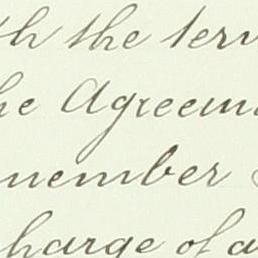 th the term
he Agreeme
member
harge of a